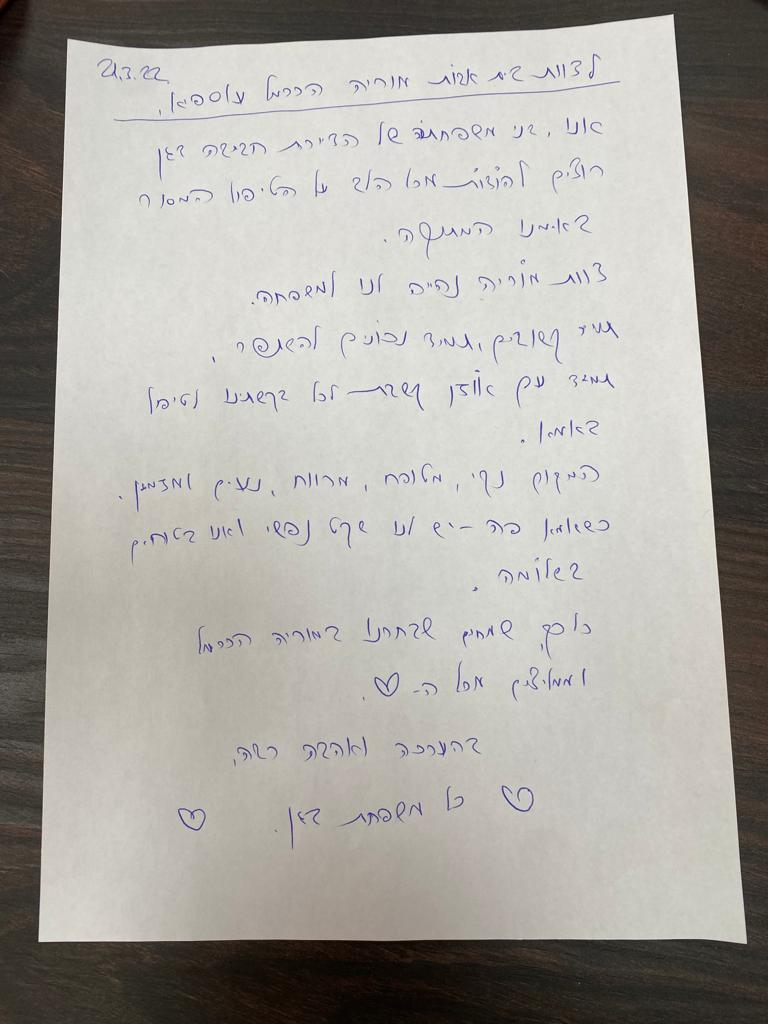 21.3.22
לצוות בית אבות מוריה הכרמל עוספיא,
אנו, בני משפחתה של הדיירת חביבה דאן
רוצים להודות מכל הלב על הטיפול המסור
באימנו המתוקה.
צוות מוריה נהייה לנו למשפחה.
תמיד קשובים, תמיד נכונים להשתפר,
תמיד עם אוזן קשבת לכל בקשתינו לטיפול
באמא.
המקום נקי, מטופח, מרווח, נעים ומזמין.
כשאמא פה - יש לנו שקט נפשי ואנו בטוחים
בשלומה.
כל כך שמחים שבחרנו במוריה הכרמל
וממליצים מכל ה- ♡.
בהערכה ואהבה רבה,
♡ כל משפחת דאן. ♡